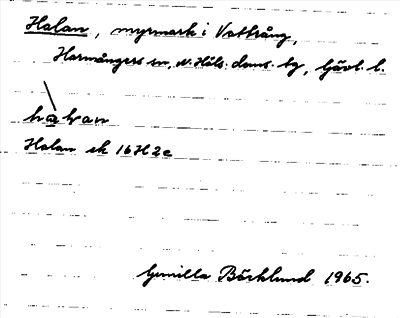 Halan, myrmark i Vattrång,
Harmångers sn, N. Häls. doms. tg, Gävl. l.
hàlan
Halan ek 16H2e
Gunilla Bäcklund 1965.